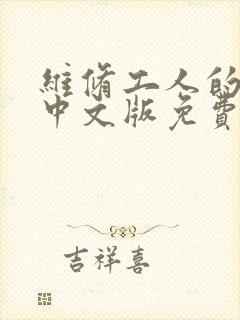 維脩工人的
中文版免費
吉祥喜